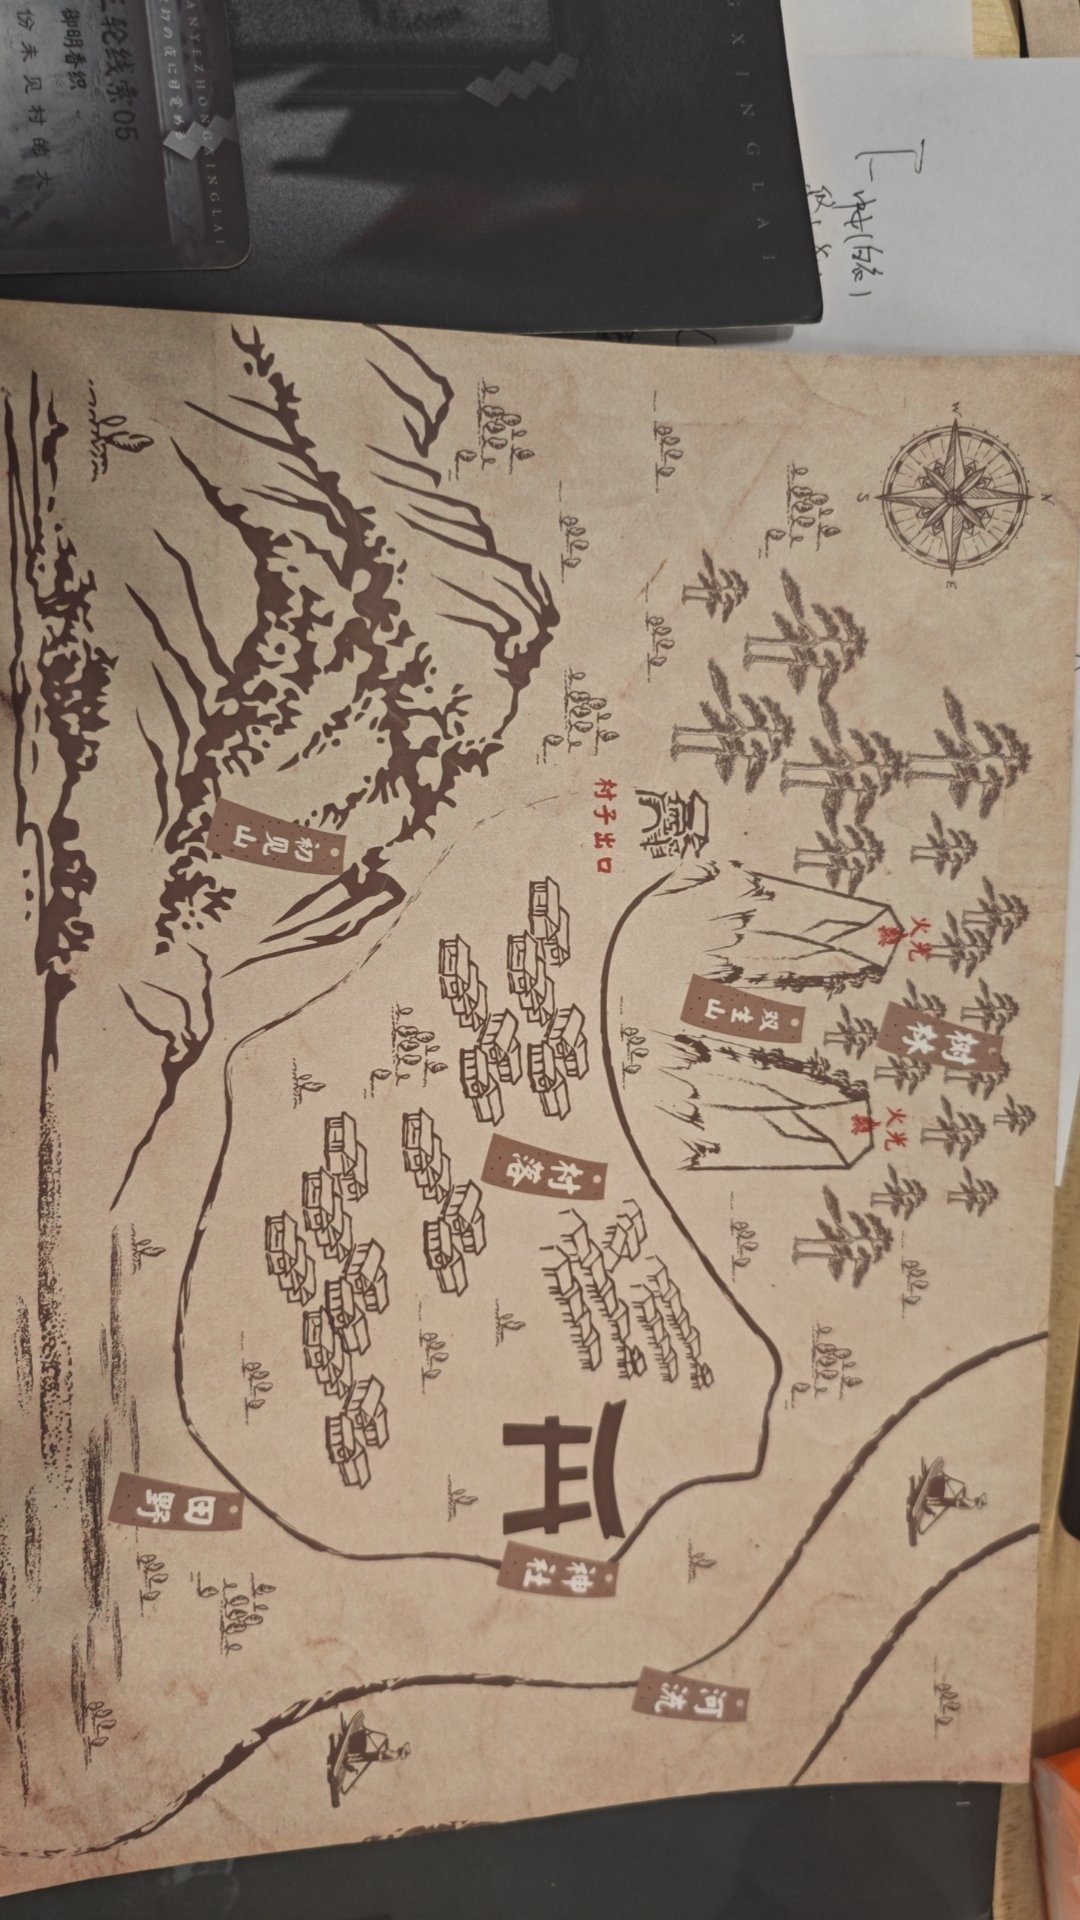 ANYEZHONG XINGLAI
三轮线索05
御明香织
份未见村的大
GXINGLAI
W
N
S
E
村子出口
火光
树林
双生山
火光
初见山
村落
田野
神社
河流